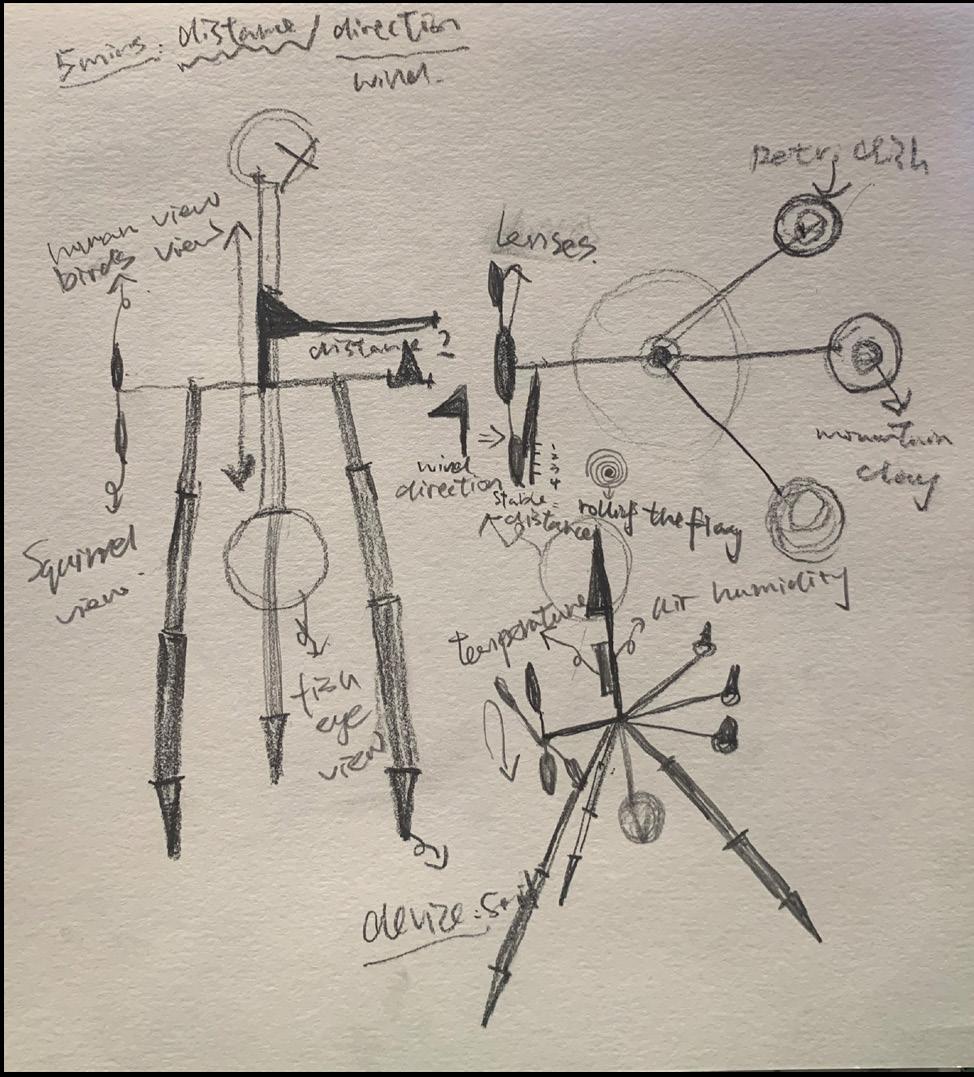 5mins: distance / direction
wind.
human view
birds view
Squirrel
view.
distance ?
wind
direction
fish
eye
view
Lenses.
1
2
3
4
petri dish
mountain
clay
stable
distance
rolling the flag
temperature
air humidity
device: